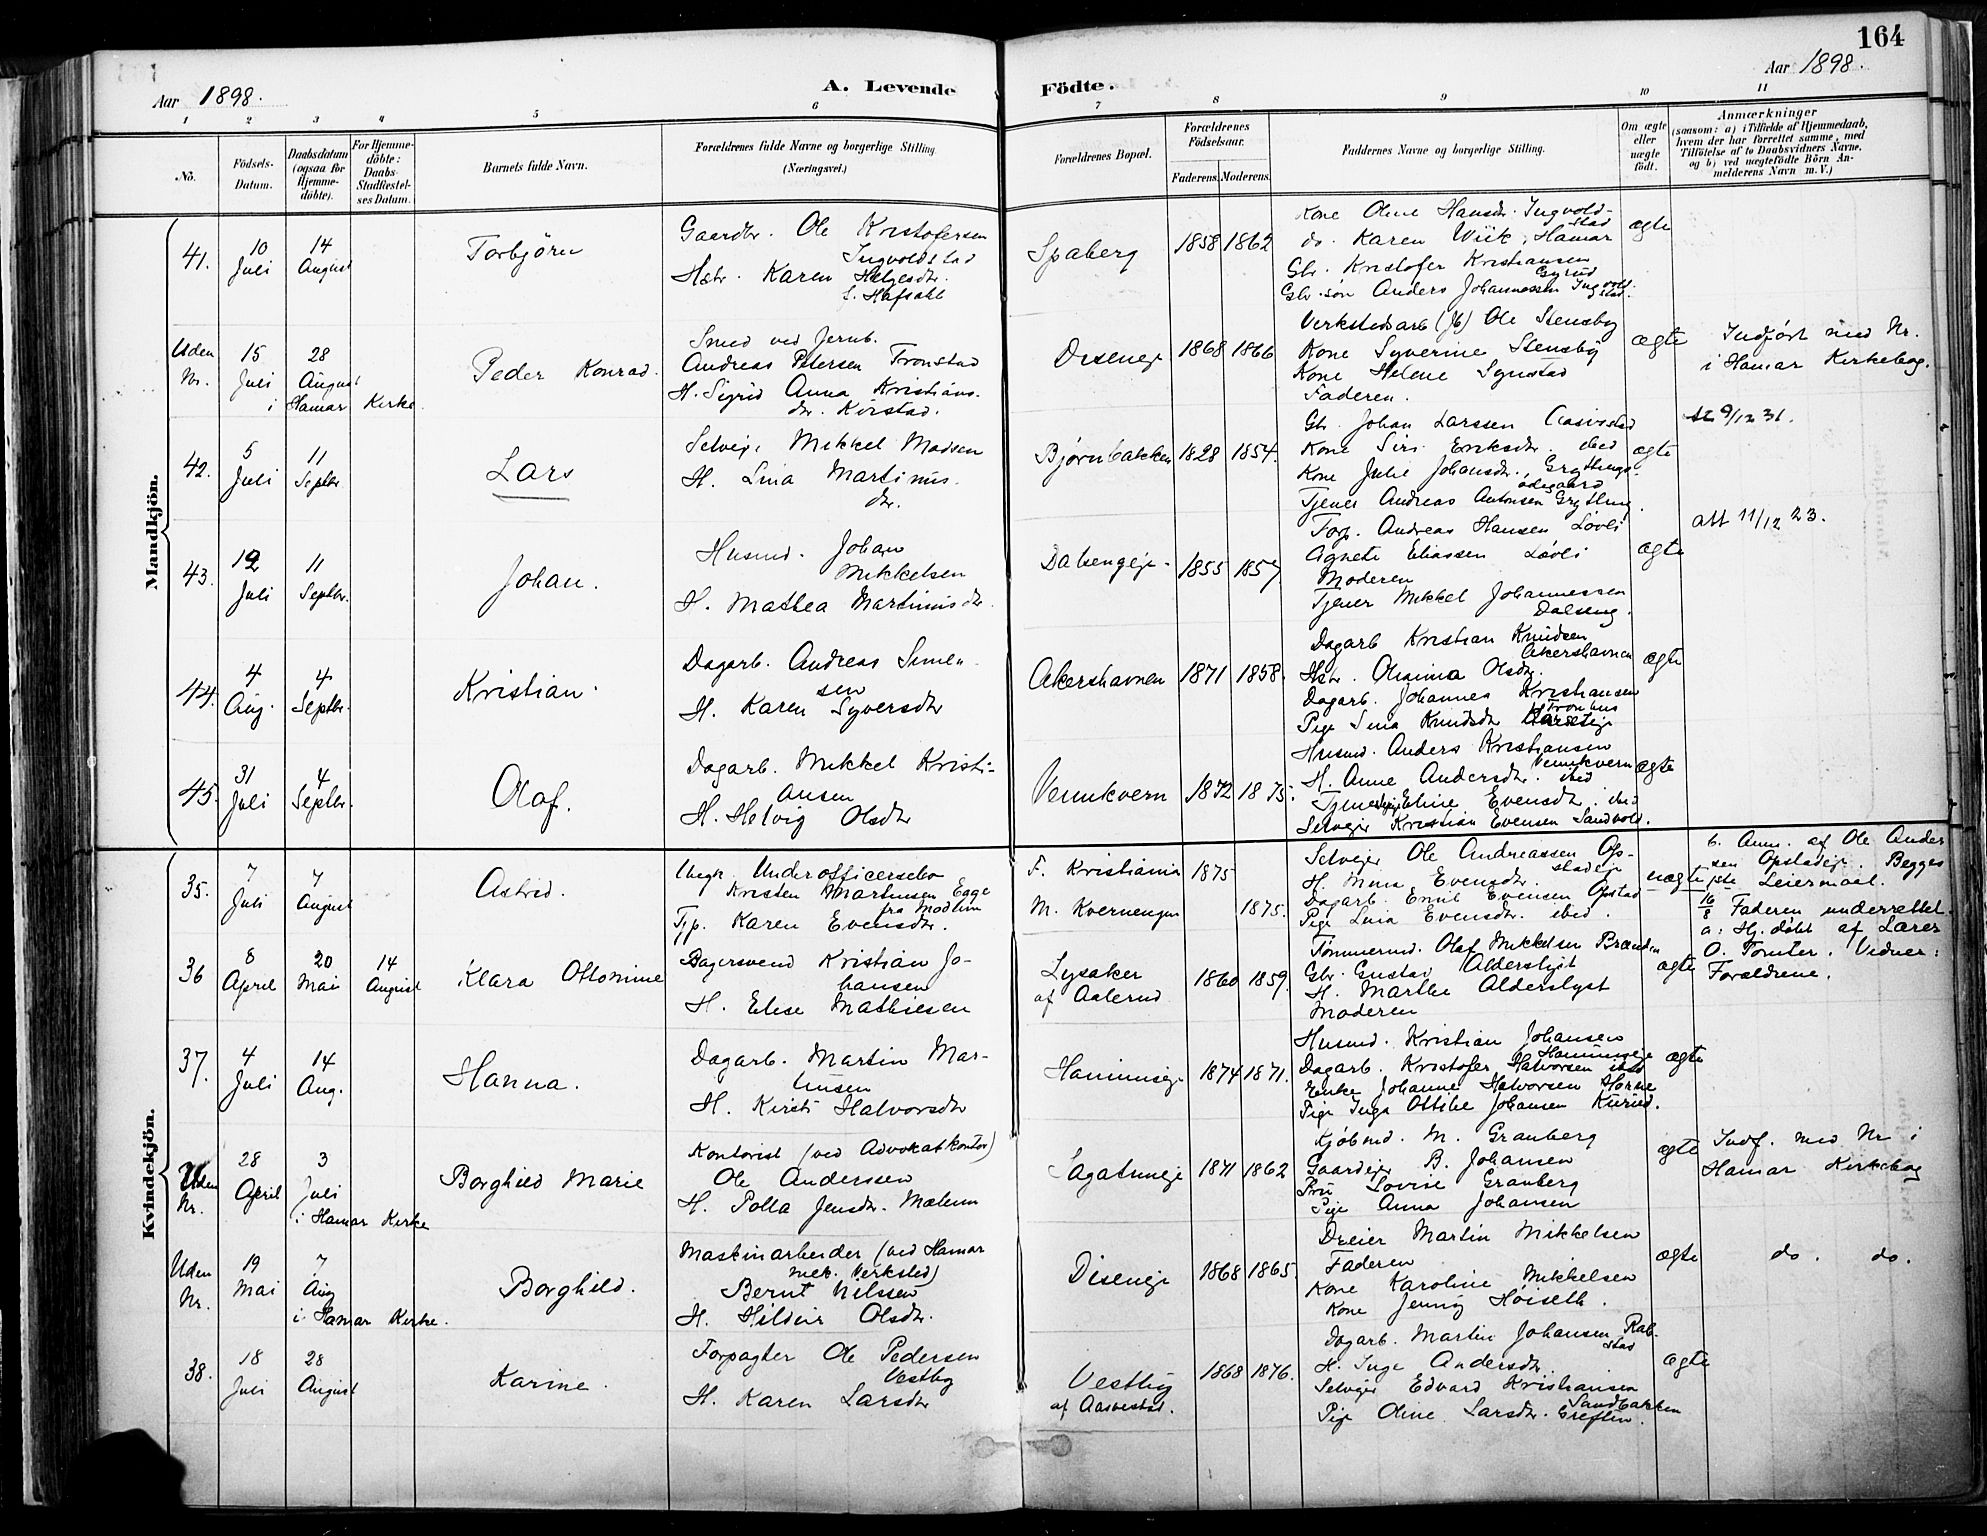 164
Aar 1898.
A. Levende Födte.
Aar 1898.
1 2 3 4 5 6 7 8 9 10 11
No.
Födsels-Datum.
Daabsdatum (ogsaa for Hjemme-döbte).
For Hjemme-döbte: Daabs-Stadfæstel-ses Datum.
Barnets fulde Navn.
Forældrenes fulde Navne og borgerlige Stilling (Næringsvei.)
Forældrenes Bopæl.
Forældrenes Födselsaar.
Faderens. Moderens.
Faddernes Navne og borgerlige Stilling.
Om ægte eller uægte födt.
Anmærkninger
(saasom: a) i Tilfælde af Hjemmedaab,
hvem der har forrettet samme, med
Tilföielse af to Daabsvidners Navne,
og b) ved uægtefödte Börn An-
melderens Navn m. V.)
Mandkjön.
41.
10 Juli
14 August
Torbjörn
Gaardbr. Ole Kristofersen
Ingvoldstad
Hstr. Karen Helgesdtr.
f. Hafsahl
Spaberg
1858 1862
Kone Oline Hansdr. Ingvold-
stad
do. Karen Wiik, Hamar
Gbr. Kristofer Kristiansen
Gyrud
Gbr. søn Anders Johannessen Ingvold
stad.
ægte
Uden Nr.
15 Juli
28 August
i Hamar Kirke.
Peder Konrad.
Smed ved Jernb.
Andreas Petersen Tronstad
H. Sigrid Anna Kristians.
dtr. Kirstad.
Diseneje
1868 1866
Verkstedsarb (Jb) Ole Stensby
Kone Syverine Stensby
Kone Helene Synstad
Faderen.
ægte
Indført med Nr.
i Hamar Kirkebog.
42.
5 Juli
11 Septbr
Lars
Selvej. Mikkel Madsen
H. Lina Martinus.
dtr.
Bjørnbakken
1828 1854.
Gb. Johan Larssen
Kone Siri Eriksdtr. ibid
Kone Julie Johansdtr. Gryttings
ödegaard
Tjener Andreas Antonsen Grytting.
ægte
9/12 31.
43.
12 Juli
11 Septbr.
Johan.
Husmd. Johan
Mikkelsen
H. Mathea Martinusdtr.
Dalsengeje.
1855 1857
Forp. Andreas Hansen Løvli
Agnete Eliassen Løvli
Moderen
Tjener Mikkel Johannessen
Dalseng.
ægte
att 11/12 23.
44.
4 Aug.
4 Septbr.
Kristian.
Dagarb. Andreas Simen-
sen
H. Karen Syversdtr
Akershavnen
1871 1858.
Dagarb Kristian Knudsen
Akershavnen
Hstr. Olianna Olsdtr.
Dagarb. Johannes Kristiansen
Tronhus
Pige Lina Knudsdtr
ægte
45.
31 Juli
4 Septbr.
Olaf.
Dagarb. Mikkel Kristi-
ansen
H. Helvig Olsdtr
Vennkvern
1872 1875.
Husmd. Anders Kristiansen
Vennkvern
H. Anne Andersdtr. ibid
Tjenestepige Eline Evensdtr. ibid
Selvejer Kristian Evensen Sandvold.
ægte
Kvindekjön.
35.
7 Juli
7 August
Astrid.
Ungk. Underofficerselev
Kristen Martinsen Egge
fra Modum
Tjp. Karen Evensdtr.
F. Kristiania
M. Kvernengen
1875
1875.
Selvejer Ole Andreassen Op-
stadeje
H. Mina Evensdtr.
Dagarb. Emil Evensen Opstad
Pige Lina Evensdtr. ibid.
uægte
b. Anm. af Ole Ander
sen Opstadeje. Begges
1ste Leiermaal.
16/8 Faderen underrettet.
36
8 April
20 Mai
14 August
Klara Ottomine
Bagersvend Kristian Jo-
hansen
H. Elise Mathiesen
Lysaker
af Aalerud
1860 1859.
Tømmermd. Olaf Mikkelsen Brænden
Gbr. Gustav Alderslyst
H. Marthe Alderslyst
Moderen
ægte
a: Hj. døbt af Lærer
O. Tomter. Vidner:
Forældrene.
37.
4 Juli
14 Aug.
Hanna.
Dagarb. Martin Mar-
tinsen
H. Kirsti Halvorsdtr
Hommseje
1874 1871.
Husmd. Kristian Johansen
Dagarb. Kristofer Halvorsen ibid
Enke Johanne Halvorsen Horne
Pige Inga Ottilie Johansen Kurud.
ægte
Uden Nr.
28 April
3 Juli
i Hamar Kirke
Borghild Marie
Kontorist (ved Advokatkontor)
Ole Anderssen
H. Polla Jensdtr. Mælum
Sagatuneje
1871 1862
Kjöbmd. M. Granberg
Gaardejer B. Johansen
Fru Lovise Granberg
Pige Anna Johansen
ægte
Indf. med Nr i
Hamar Kirkebog
Uden Nr.
19 Mai
7 Aug
i Hamar Kirke.
Borghild.
Maskinarbeider (ved Hamar
mek. Verksted)
Bernt Nilssen
H. Hildur Olsdtr.
Diseneje
1868 1865.
Dreier Martin Mikkelsen
Faderen
Kone Karoline Mikkelsen
Kone Jenny Høiseth.
ægte
do. do.
38.
18 Juli
28 August
Karine.
Forpagter Ole Pedersen
Vestby
H. Karen Larsdtr
Vestby
af Aasvestad.
1868 1876.
Dagarb. Martin Johansen Rab-
stad
H. Inge Andersdtr.
Selvejer Edvard Kristiansen
Sandbakken
Pige Oline Larsdtr. Greften.
ægte